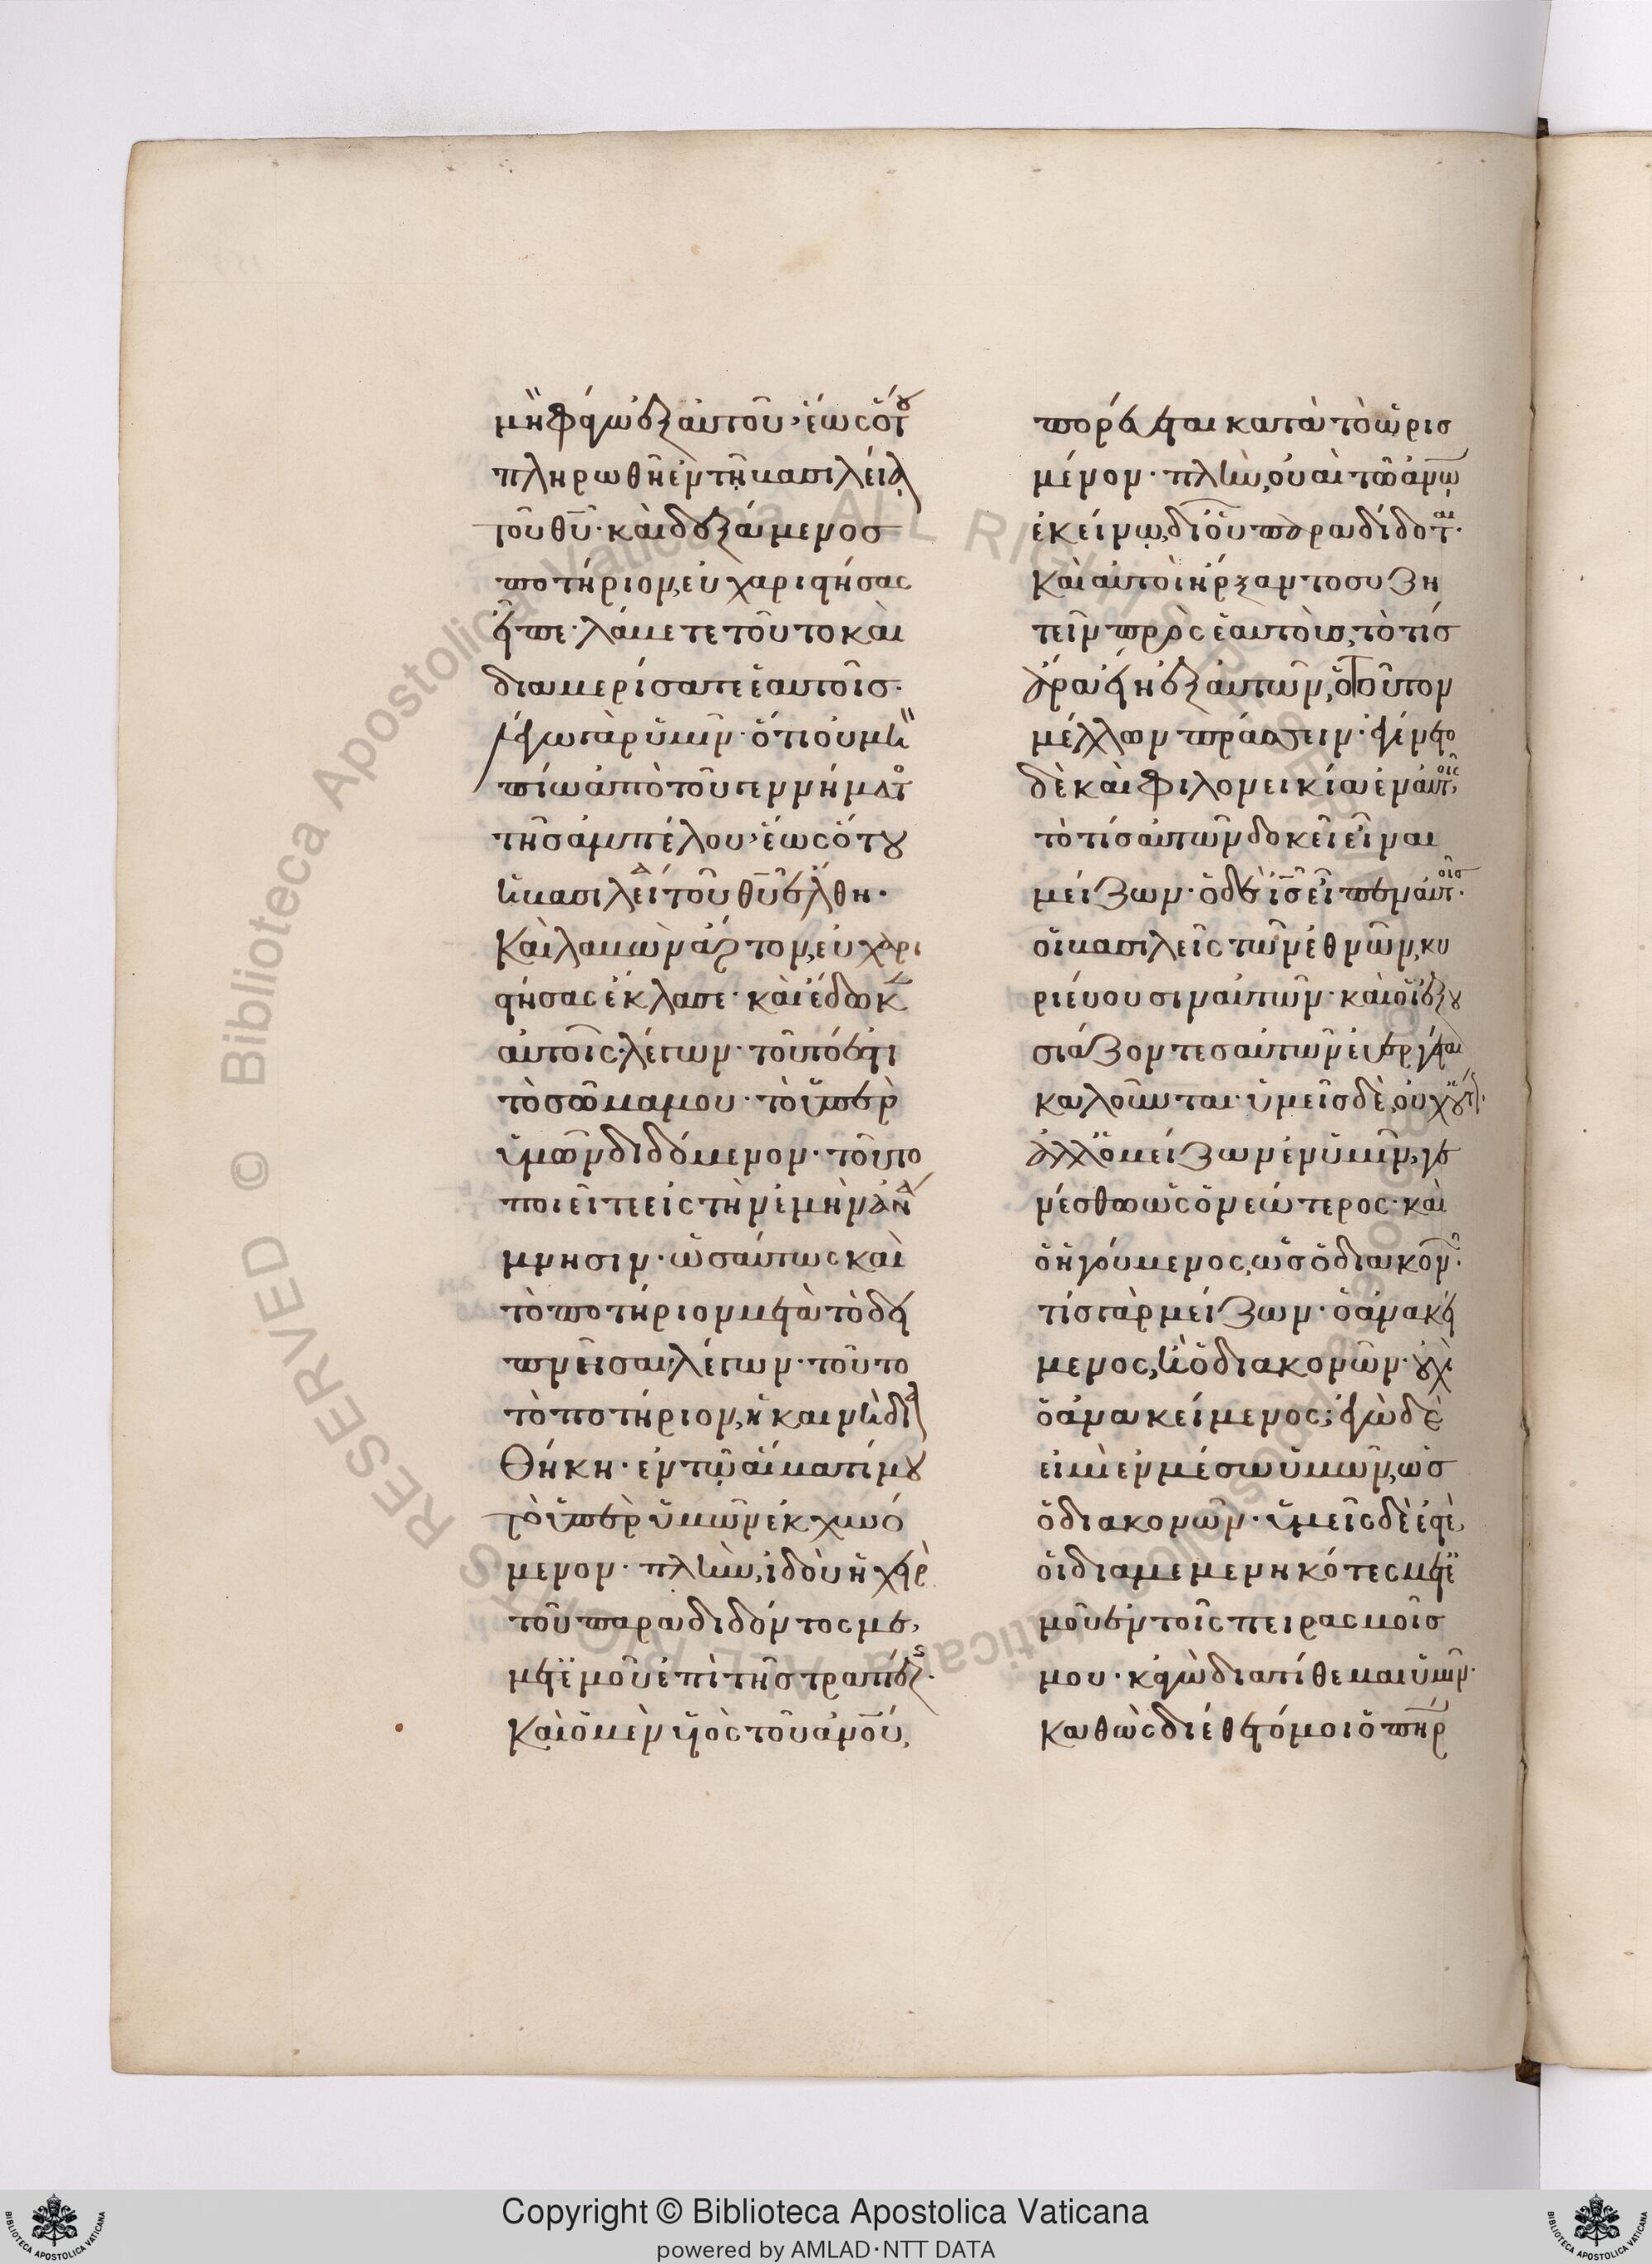 μὴ φάγω ἐξ αὐτοῦ, ἕως ὅτου
πληρωθῆ ἐν τῆ βασιλείᾳ
τοῦ θῦ· καὶ δεξάμενος
ποτήριον, εὐχαριστήσας
εἶπε· λάβετε τοῦτο καὶ
διαμερίσατε ἑαυτοῖς·
λέγω γὰρ ὑμῖν· ὅτι οὐ μὴ
πίω ἀπὸ τοῦ γεννήματο
τῆς ἀμπέλου, ἕως ὅτου
ἡ βασιλεία τοῦ θῦ ἔλθη·
Καὶ λαβὼν ἄρτον, εὐχαρι
στήσας ἔκλασε· καὶ ἔδωκ
αὐτοῖς λέγων· τοῦτό ἐστι
τὸ σῶμα μου· τὸ ὑπὲρ
ὑμῶν διδόμενον· τοῦτο
ποιεῖτε εἰς τὴν ἐμὴν ἀνά
μνησιν· ὡσαύτως καὶ
τὸ ποτήριον μετὰ τὸ δει
πνῆσαι, λέγων· τοῦτο
τὸ ποτήριον, ἡ καινὴ δια
Θήκη· ἐν τῶ αἵματί μου
τὸ ὑπὲρ ὑμῶν ἐκχυνό
μενον· πλὴν, ἰδοὺ ἡ χεὶρ
τοῦ παραδιδόντος με,
μετ' ἐμοῦ ἐπὶ τῆς τραπέζης·
Καὶ ὁ μὲν υἱὸς τοῦ ἀνοῦ,
πορεύεται κατὰ τὸ ὡρισ
μένον· πλὴν, οὐαὶ τῶ ἀνω
ἐκείνω, δι' οὗ παραδίδοται·
Καὶ αὐτοὶ ἤρξαντο συζη
τεῖν πρὸς ἑαυτοὺς, τὸ τίς
ἄρα εἴη ἐξ αὐτῶν, ὁ τοῦτο
μέλλων πράσσειν· ἐγένετο
δὲ καὶ φιλονεικία ἐν αὐτοῖς,
τὸ τίς αὐτῶν δοκεῖ εἶναι
μείζων· ὁ δὲ ἰς εἶπεν αὐτοῖς·
οἱ βασιλεῖς τῶν ἐθνῶν, κυ
ριεύουσιν αὐτῶν· καὶ οἱ ἐξου
σιάζοντες αὐτῶν εὐεργέται
καλοῦνται· ὑμεῖς δὲ, οὐχ οὕτως·
ἀλλ' ὁ μείζων ἐν ὑμῖν, γε
νέσθω ὡς ὁ νεώτερος· καὶ
ὁ ἡγούμενος, ὡς ὁ διακονῶν·
τίς γὰρ μείζων· ὁ ἀνακεί
μενος, ἢ ὁ διακονῶν· οὐχὶ
ὁ ἀνακείμενος; ἐγὼ δέ
εἰμι ἐν μέσω ὑμῶν, ὡς
ὁ διακονῶν· ὑμεῖς δὲ ἐστὲ,
οἱ διαμεμενηκότες μετ' ἐ
μοῦ ἐν τοῖς πειρασμοῖς
μου· κἀγὼ διατίθεμαι ὑμῖν·
Καθὼς διέθετό μοι ὁ πηρ